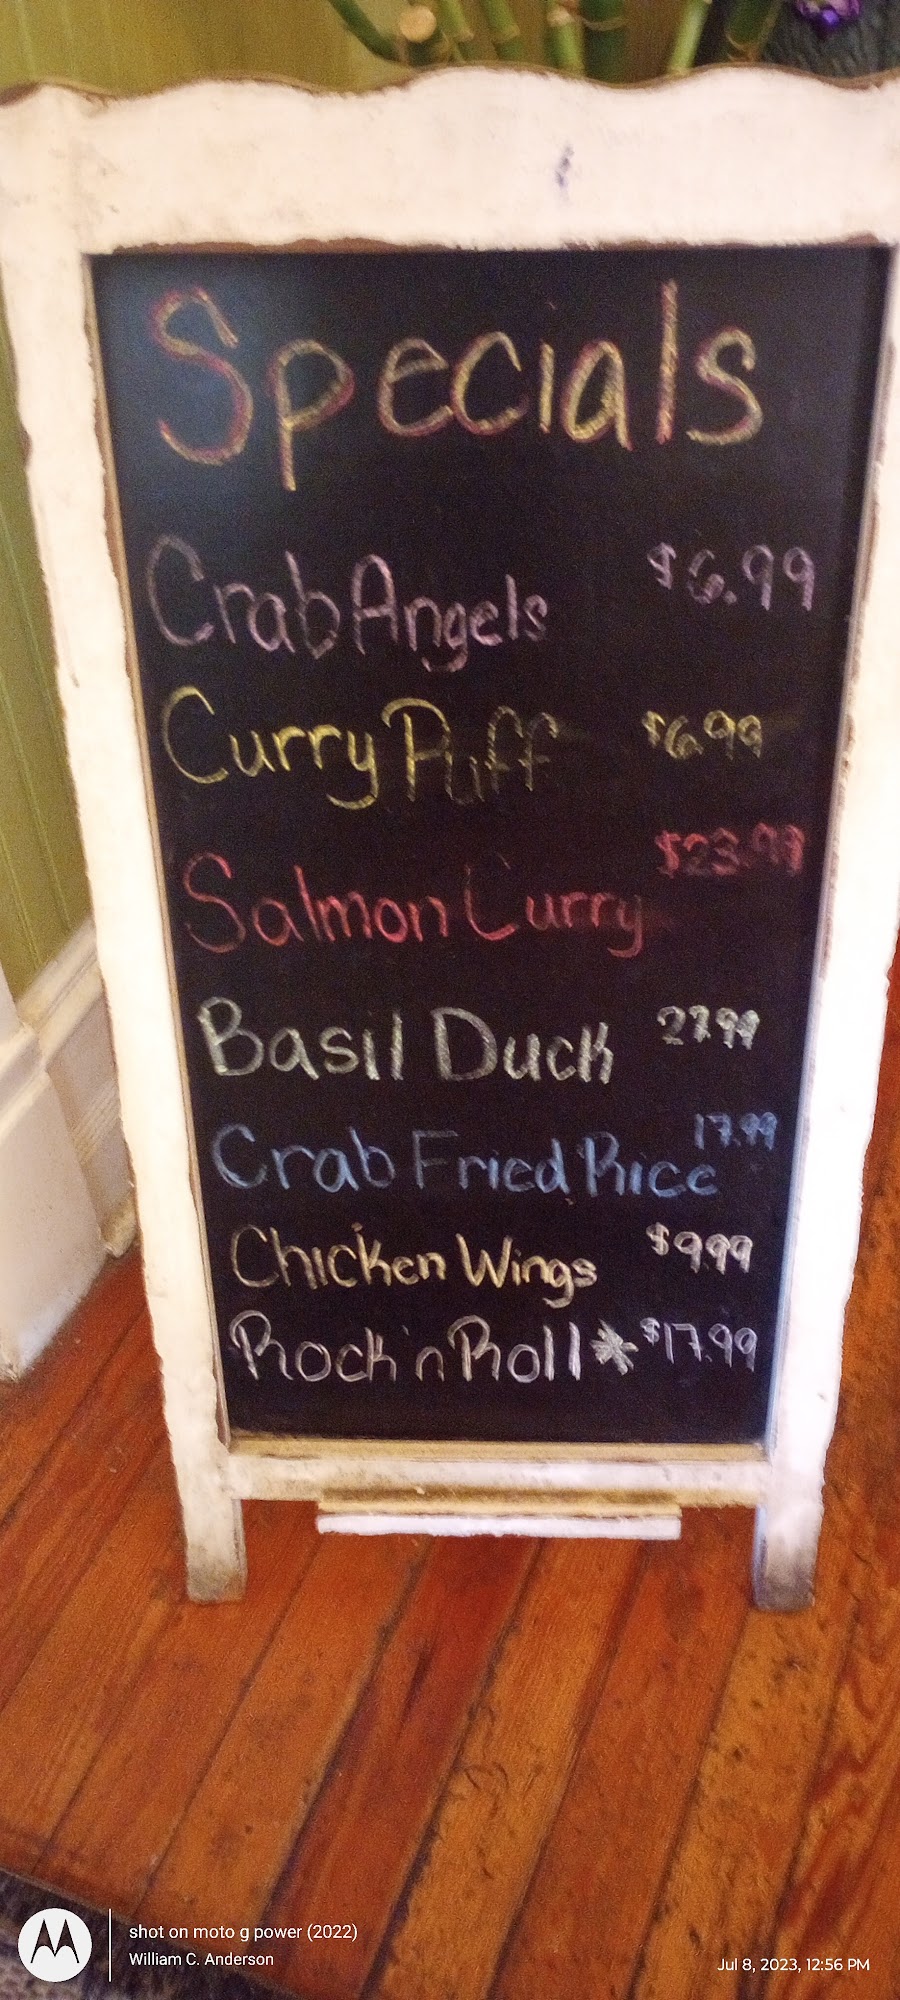 Specials
Crab Angels $6.99
Curry Puff $6.99
Salmon Curry $23.99
Basil Duck 27.99
Crab Fried Rice 17.99
Chicken Wings $9.99
Rock 'n Roll * $17.99
shot on moto g power (2022)
William C. Anderson
Jul 8, 2023, 12:56 PM